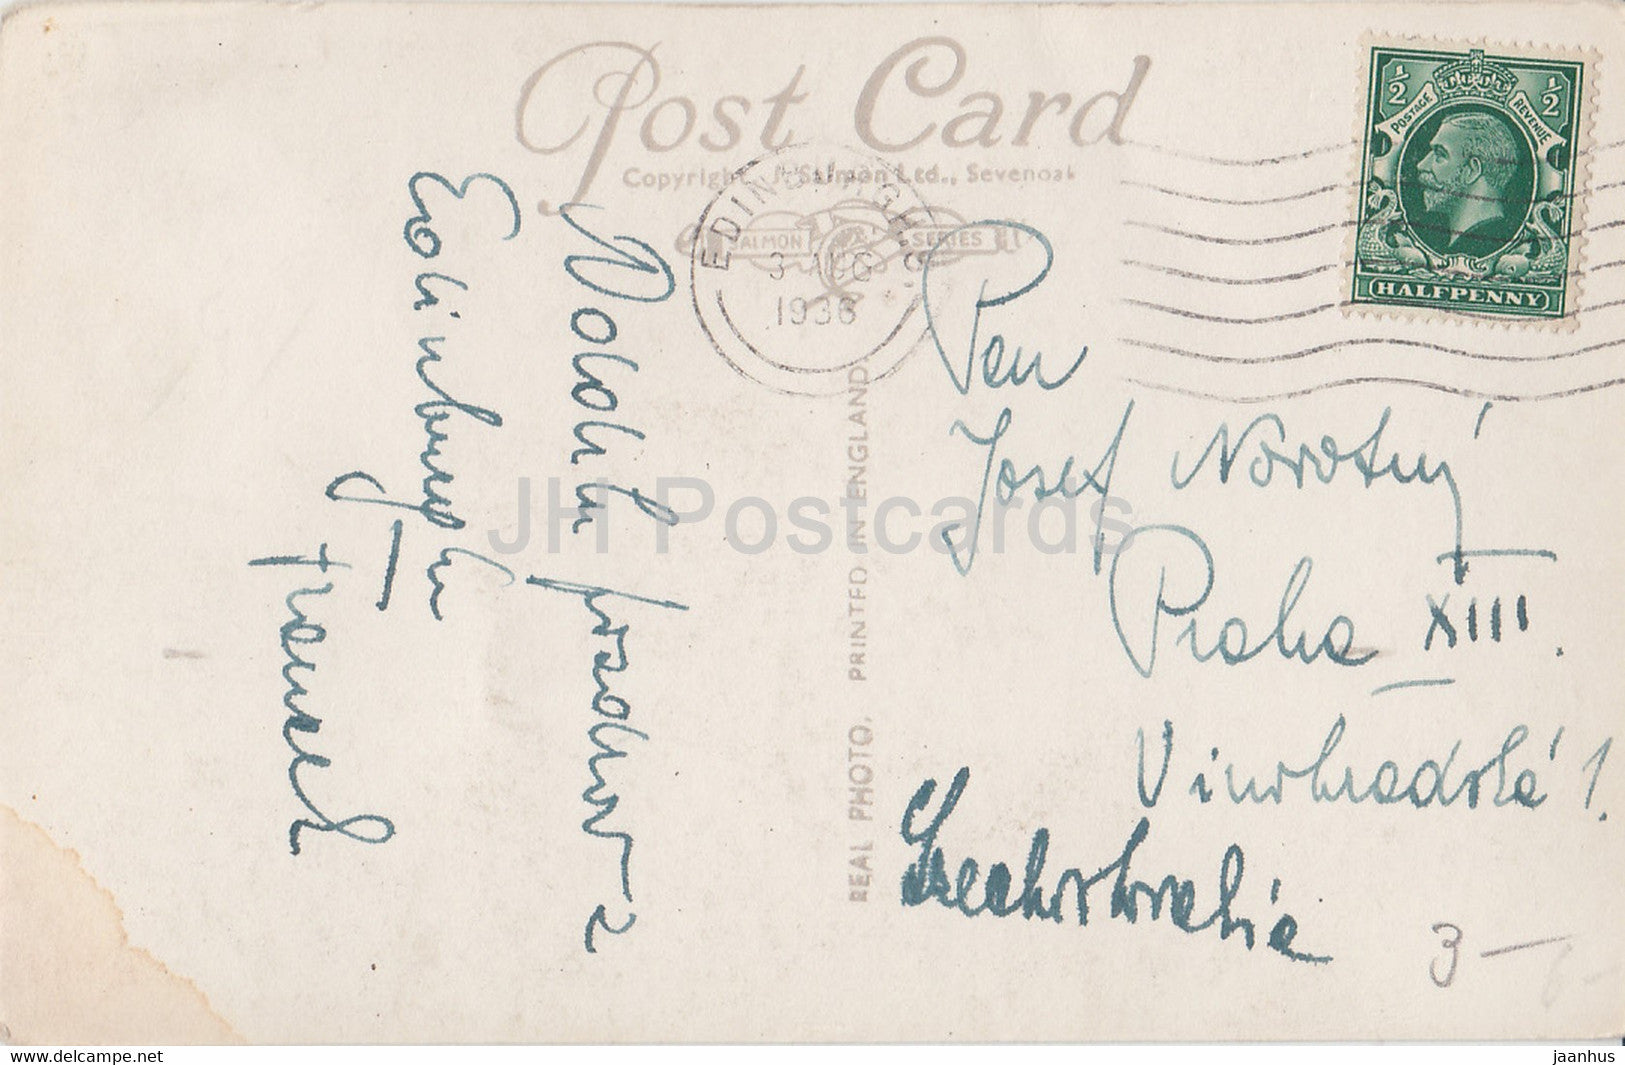 Post Card
Copyright J. Salmon Ltd., Sevenoak
SALMON SERIES
EDINBURGH
3 AUG
1936
½ ½
POSTAGE REVENUE
HALFPENNY
REAL PHOTO. PRINTED IN ENGLAND.
Pan
Josef Novotný
Praha XIII.
Vinohradská 1.
Czechoslovakia
pozdrav z
Edinburghu
3 —
JH Postcards
delcampe.net
jaanhus